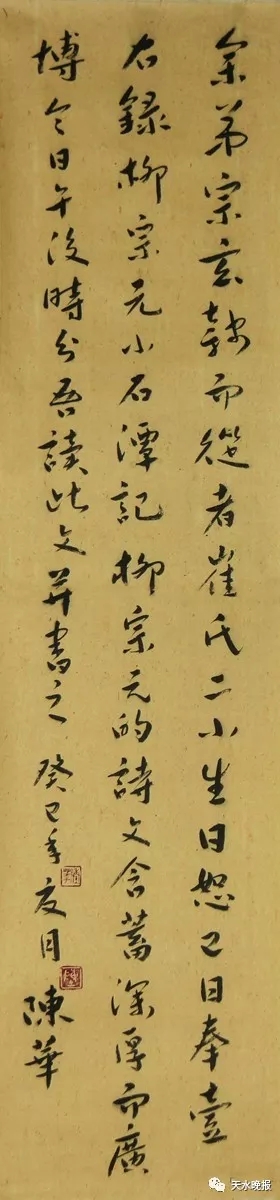 余弟宗玄隸而從者崔氏二小生曰恕己曰奉壹
右録柳宗元小石潭記柳宗元的詩文含蓄深厚而廣
博今日午後時分吾讀此文并書之 癸巳年夏月 陳華
天水晚报